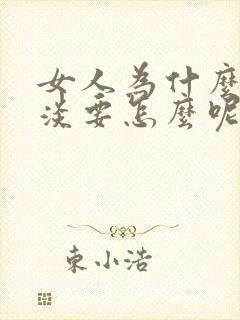 女人為什麼
淡要怎麼呢
東小浩